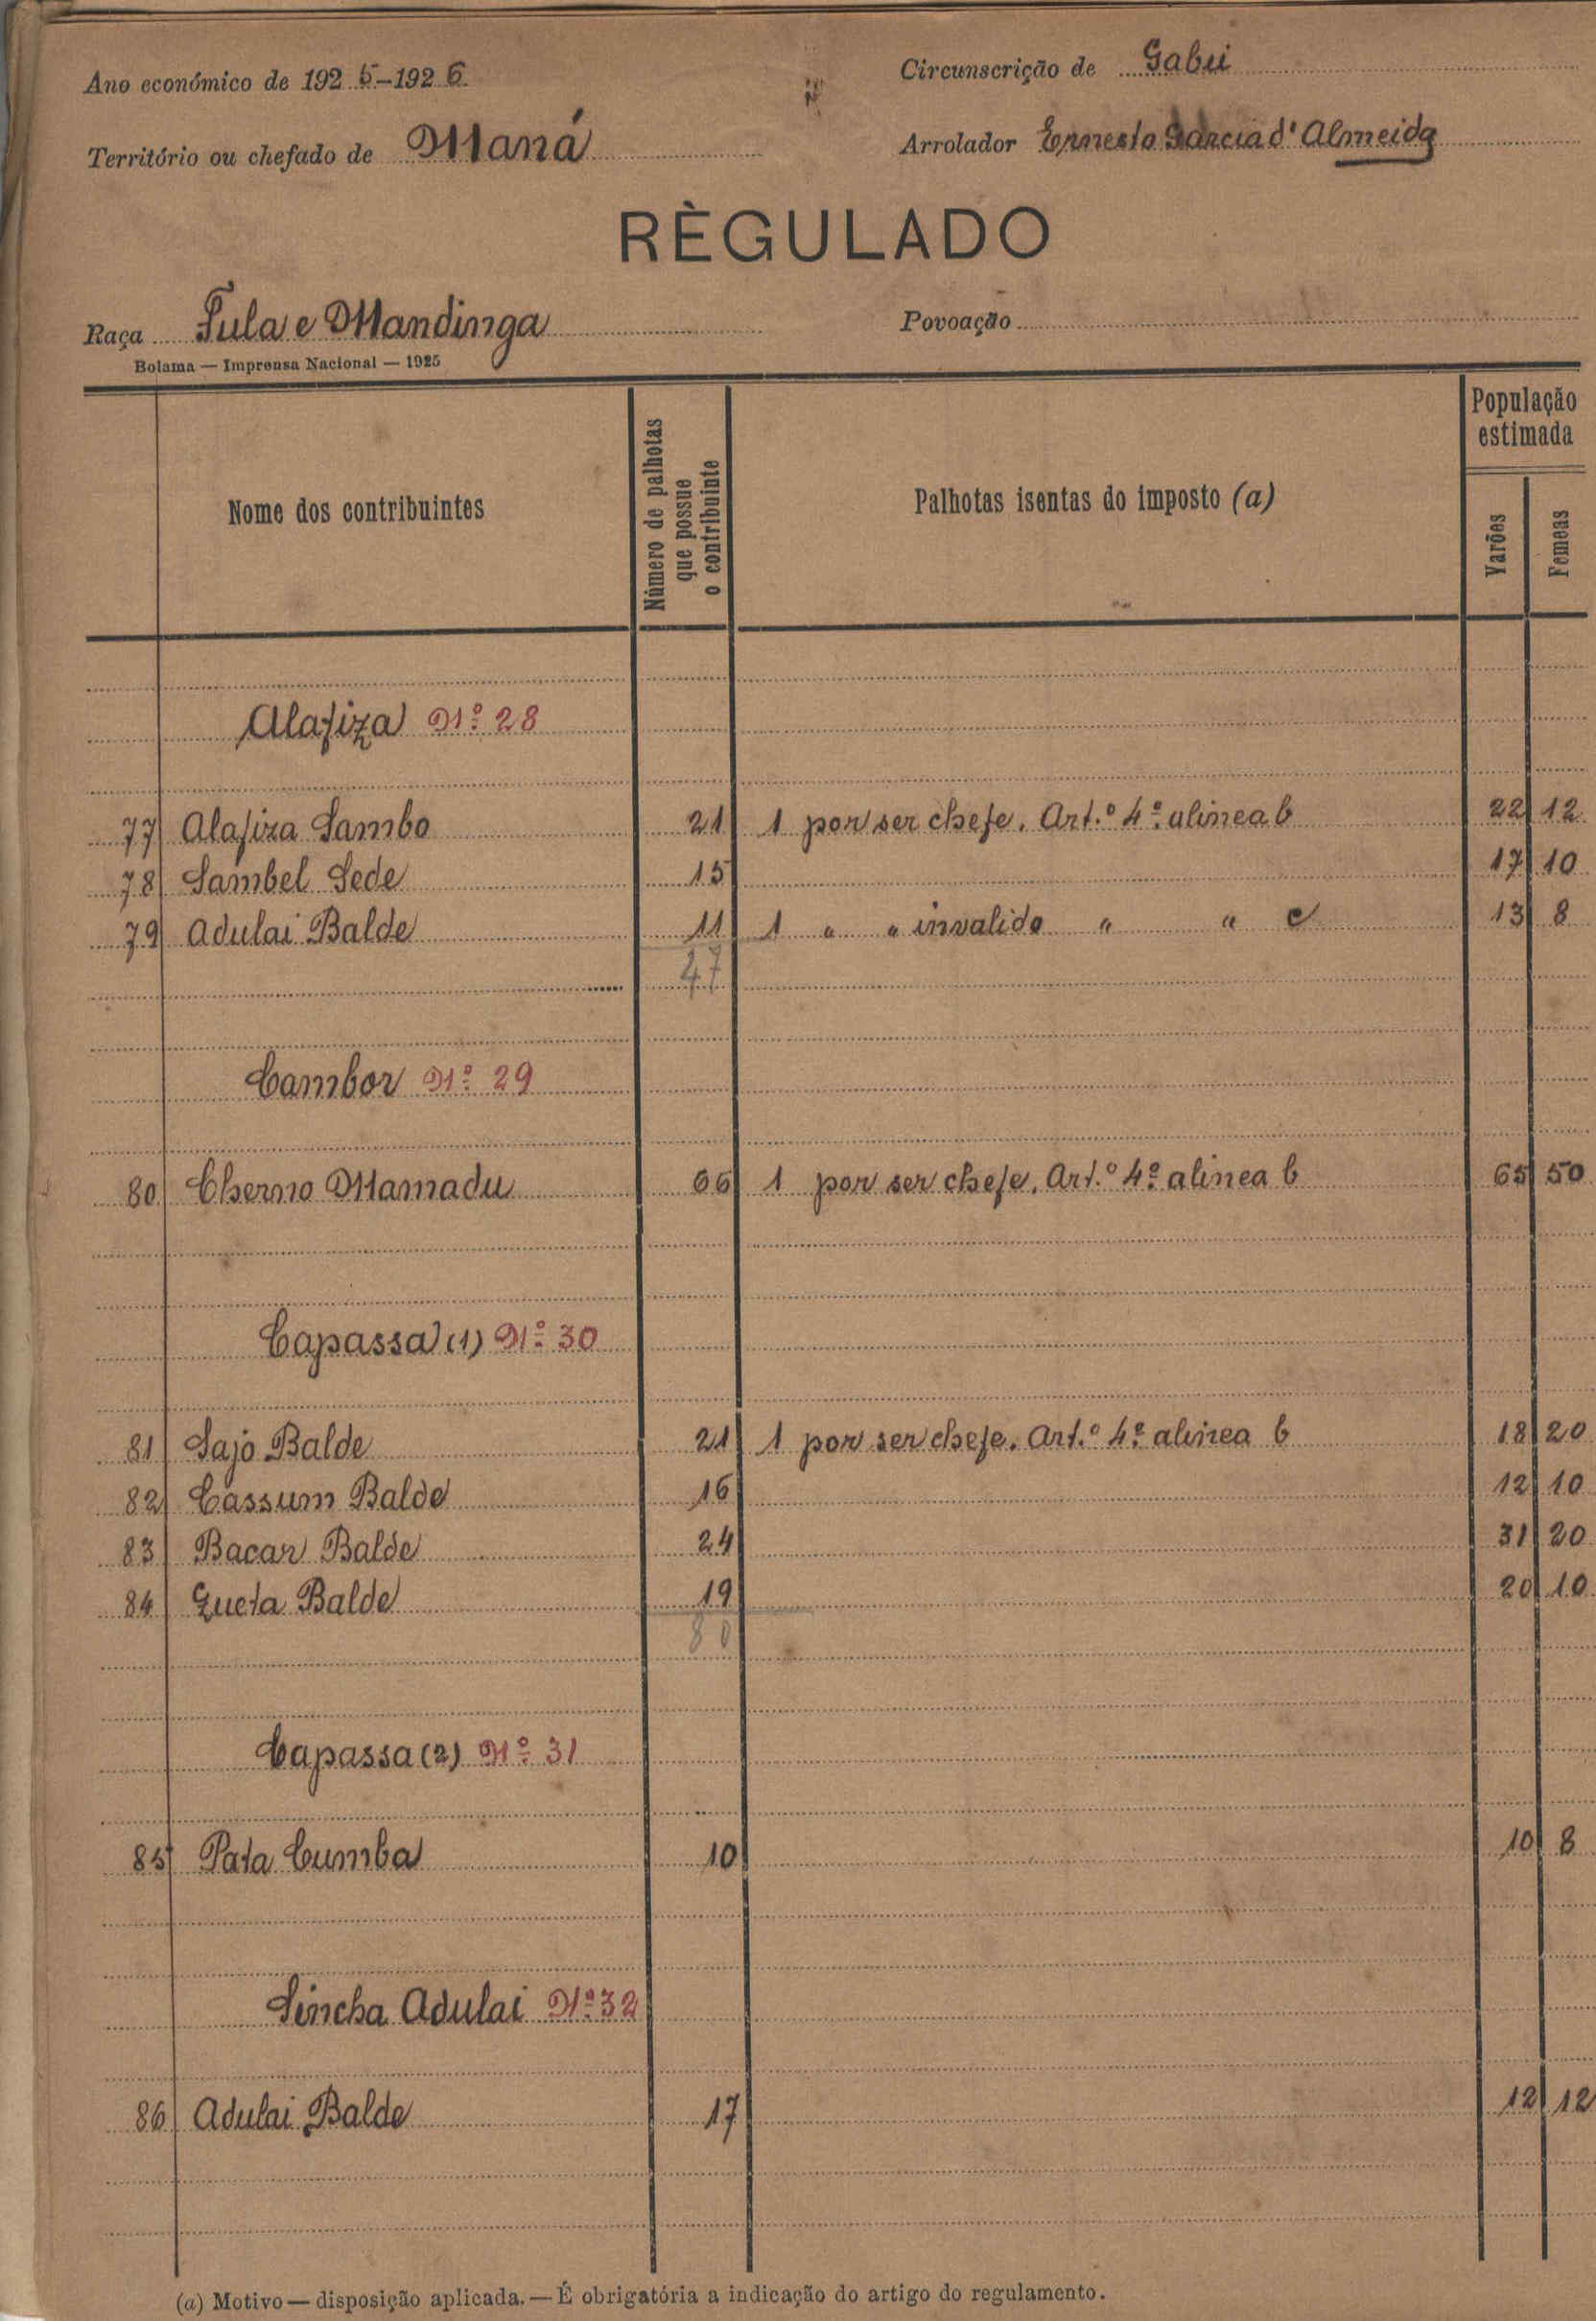 Ano económico de 1925-1926
Circunscrição de Gabú
Território ou chefado de Maná
Arrolador Ernesto Garcia d'Almeida
RÈGULADO
Raça Fula e Mandinga
Povoação
Bolama — Imprensa Nacional — 1925
Nome dos contribuintes
Número de palhotas que possue o contribuinte
Palhotas isentas do imposto (a)
População estimada
Varões
Femeas
Alafiza Nº 28
77 Alafiza Sambo 21 1 por ser chefe. Art.º 4º alinea b 22 12
78 Sambel Sede 15 17 10
79 Adulai Balde 11 1 " " invalido " " c 13 8
47
Cambor Nº 29
80 Cherno Mamadu 66 1 por ser chefe. Art.º 4º alinea b 65 50
Capassa (1) Nº 30
81 Sajo Balde 21 1 por ser chefe. Art.º 4º alinea b 18 20
82 Cassum Balde 16 12 10
83 Bacar Balde 24 31 20
84 Gueta Balde 19 20 10
80
Capassa (2) Nº 31
85 Pata Cumba 10 10 8
Sincha Adulai Nº 32
86 Adulai Balde 17 12 12
(a) Motivo — disposição aplicada. — É obrigatória a indicação do artigo do regulamento.